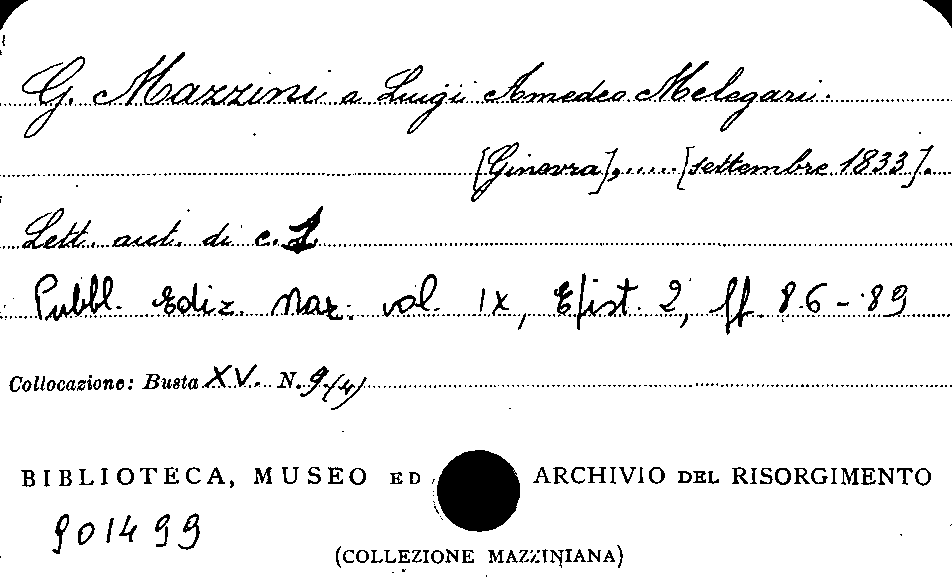 G. Mazzini a Luigi Amedeo Melegari.
[Ginevra], ..... [settembre 1833].
Lett. aut. di c. 1
Pubbl. Ediz. Naz. vol. IX, Epist. 2, pp. 86-89
Collocazione: Busta XV. N. 9.(4)
BIBLIOTECA, MUSEO ED ARCHIVIO DEL RISORGIMENTO
901499
(COLLEZIONE MAZZINIANA)